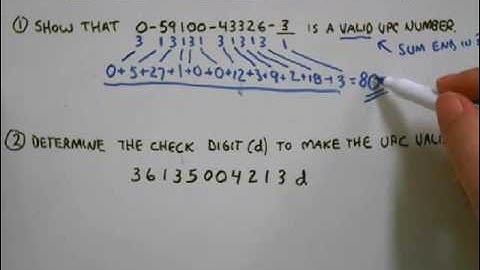 ① SHOW THAT 0-59100-43326-3 IS A VALID UPC NUMBER.
3 1 3 1 3 1 3 1 3 1 3 1
SUM ENDS IN
0+5+27+1+0+0+12+3+9+2+18+3=80
② DETERMINE THE CHECK DIGIT (d) TO MAKE THE UPC VALI
3 6 1 3 5 0 0 4 2 1 3 d